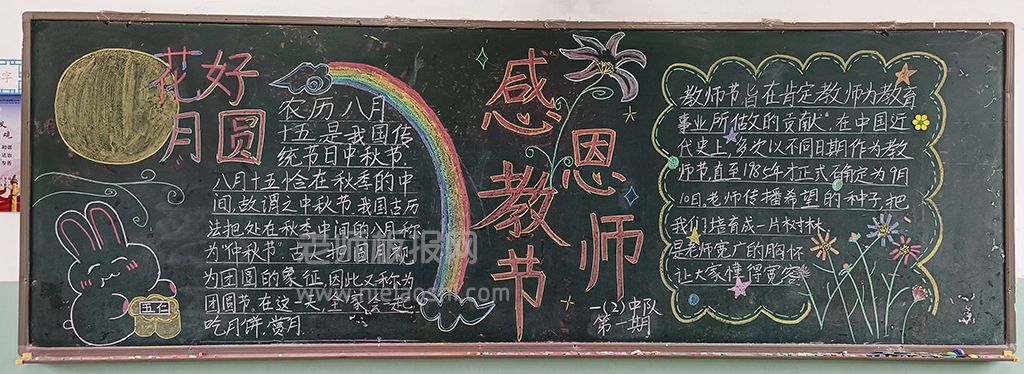 花好
月圆
农历八月
十五是我国传
统节日中秋节
八月十五恰在秋季的中
间,故谓之中秋节,我国古历
法把处在秋季中间的八月,称
为"仲秋节"
为团圆的象征,因此又称为
团圆节,在这一天,大家会
吃月饼,赏月.
五仁
感恩师
教节
一(2)中队
第一期
教师节旨在肯定教师为教育
事业所做的贡献,在中国近
代史上,多次以不同日期作为教
师节直至1985年才正式确定为9月
10日,老师传播希望的种子,把
我们培育成一片树林
是老师宽广的胸怀
让大家懂得宽容
www.
字